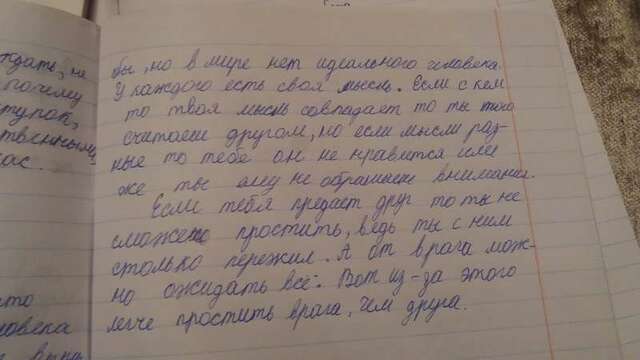 ждать, не
почему
ступок,
ственными,
ас.
бы, но в мире нет идеального человека.
У каждого есть своя мысль. Если с кем
то твоя мысль совпадает то ты того
считаеш другом, но если мысли раз-
ные то тебе он не нравится или
же ты ему не обращаеш внимания.
Если тебя предаст друг то ты не
сможеш простить, ведь ты с ним
столько пережил. А от врага мож-
но ожидать всё. Вот из-за этого
легче простить врага, чем друга.
что
ловека